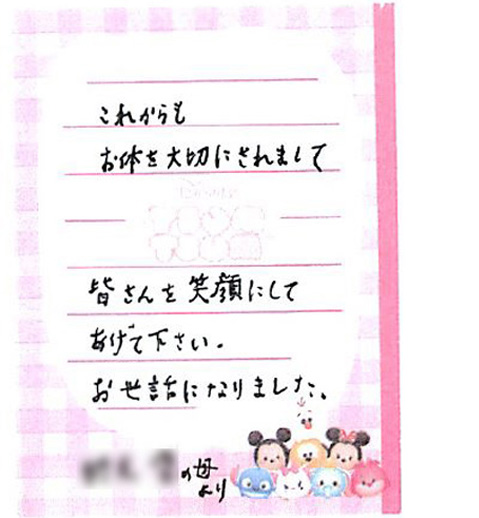 これからも
お体を大切にされまして
皆さんを笑顔にして
あげて下さい。
お世話になりました。
の母
より